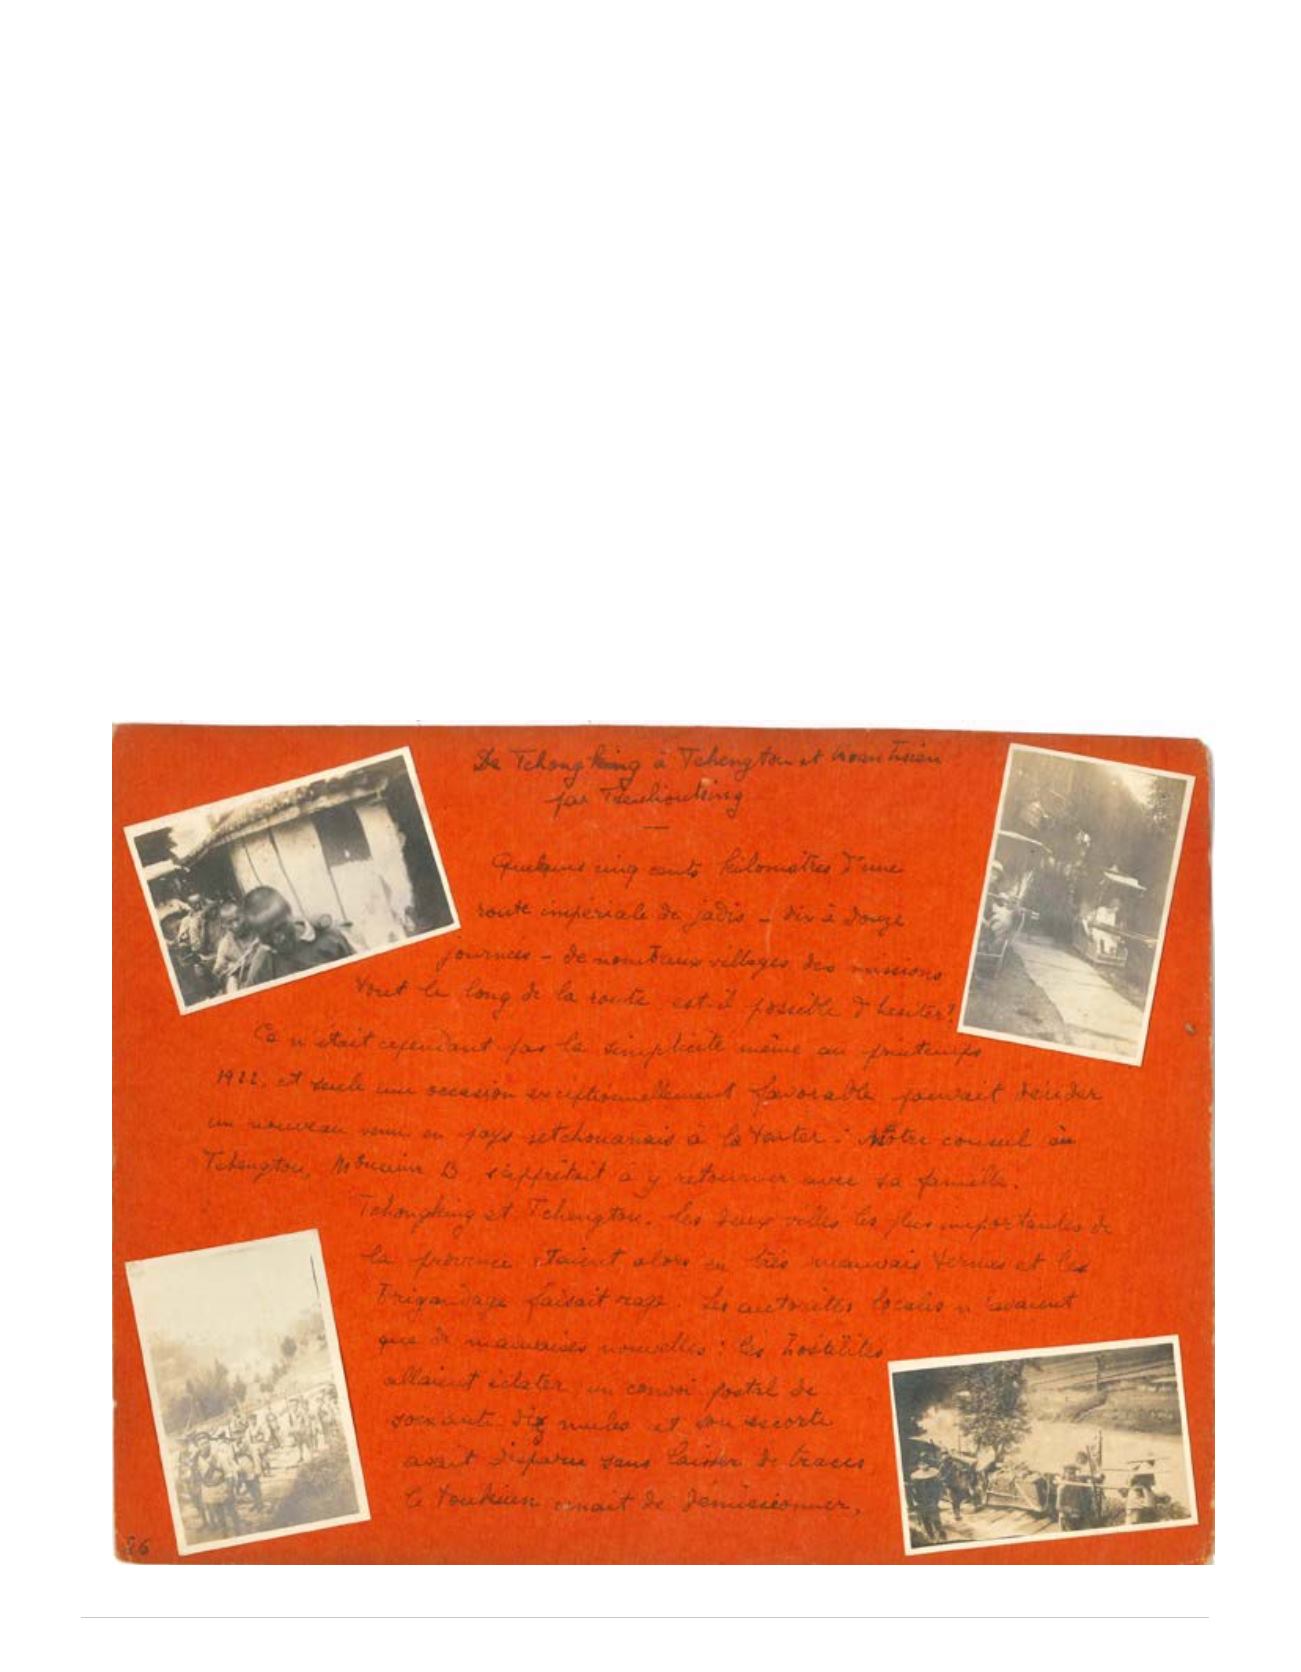 De Tchongking à Tchengtou et
par
Quelques cinq cents kilomètres d'une
route impériale de jadis – dix à douze
journées – de nombreux villages des missions
tout le long de la route est-il possible d'hésiter?
Ce n'était cependant pas la simplicité même au printemps
1922, et seule une occasion exceptionnellement favorable pouvait décider
un nouveau venu en pays setchouanais à la tenter : Notre consul à
Tchengtou, Monsieur B, s'apprêtait à y retourner avec sa famille.
Tchongking et Tchengtou, les deux villes les plus importantes de
la province étaient alors en très mauvais termes et le
brigandage faisait rage. Les autorités locales n'avaient
que de mauvaises nouvelles : les hostilités
allaient éclater, un convoi postal de
soixante dix mules et son escorte
avait disparu sans laisser de traces,
le toukiun venait de démissionner,
26